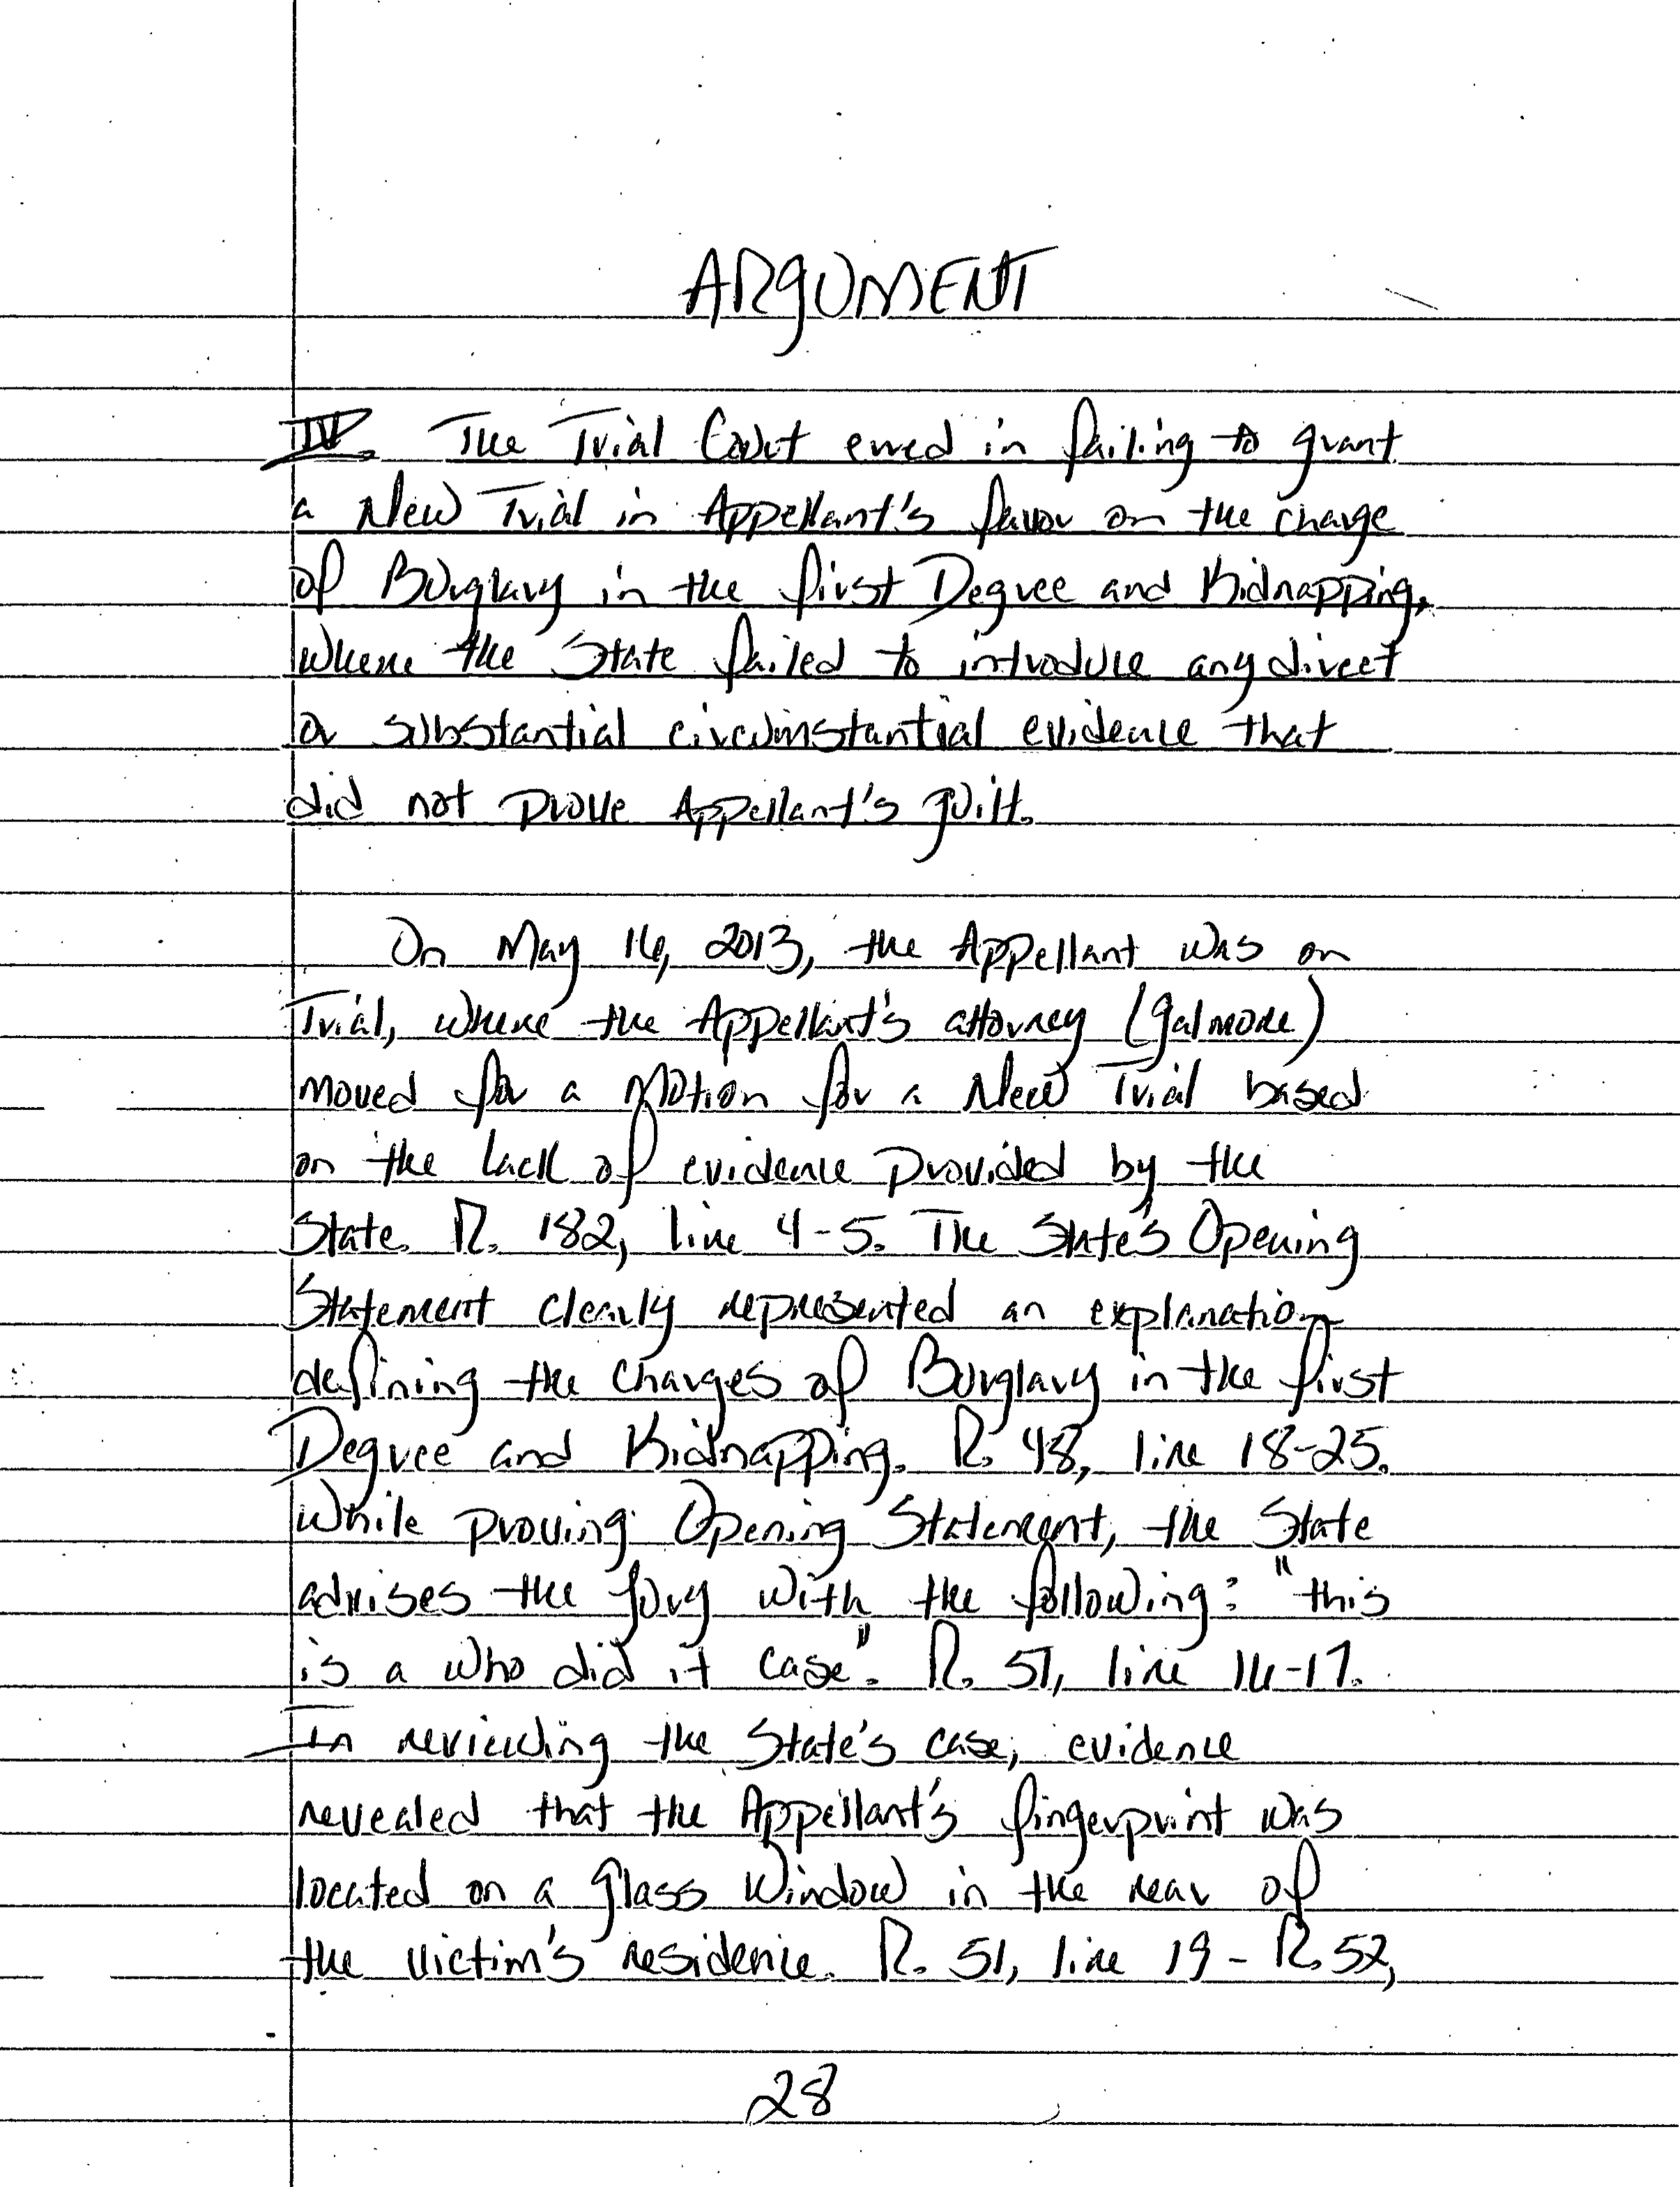 ARGUMENT
IV. The Trial Court erred in failing to grant
a New Trial in Appellant's favor on the charge
of Burglary in the first Degree and Kidnapping,
where the State failed to introduce any direct
or substantial circumstantial evidence that
did not prove Appellant's guilt.
On May 16, 2013, the Appellant was on
Trial, where the Appellant's attorney (Galmore)
moved for a Motion for a New Trial based
on the lack of evidence provided by the
State. R. 182, line 4-5. The State's Opening
Statement clearly represented an explanation
defining the charges of Burglary in the first
Degree and Kidnapping. R. 48, line 18-25.
While proving Opening Statement, the State
advises the Jury with the following: "this
is a who did it case". R. 51, line 16-17.
In reviewing the State's case, evidence
revealed that the Appellant's fingerprint was
located on a glass Window in the rear of
the victim's residence. R. 51, line 19 - R. 52,
28